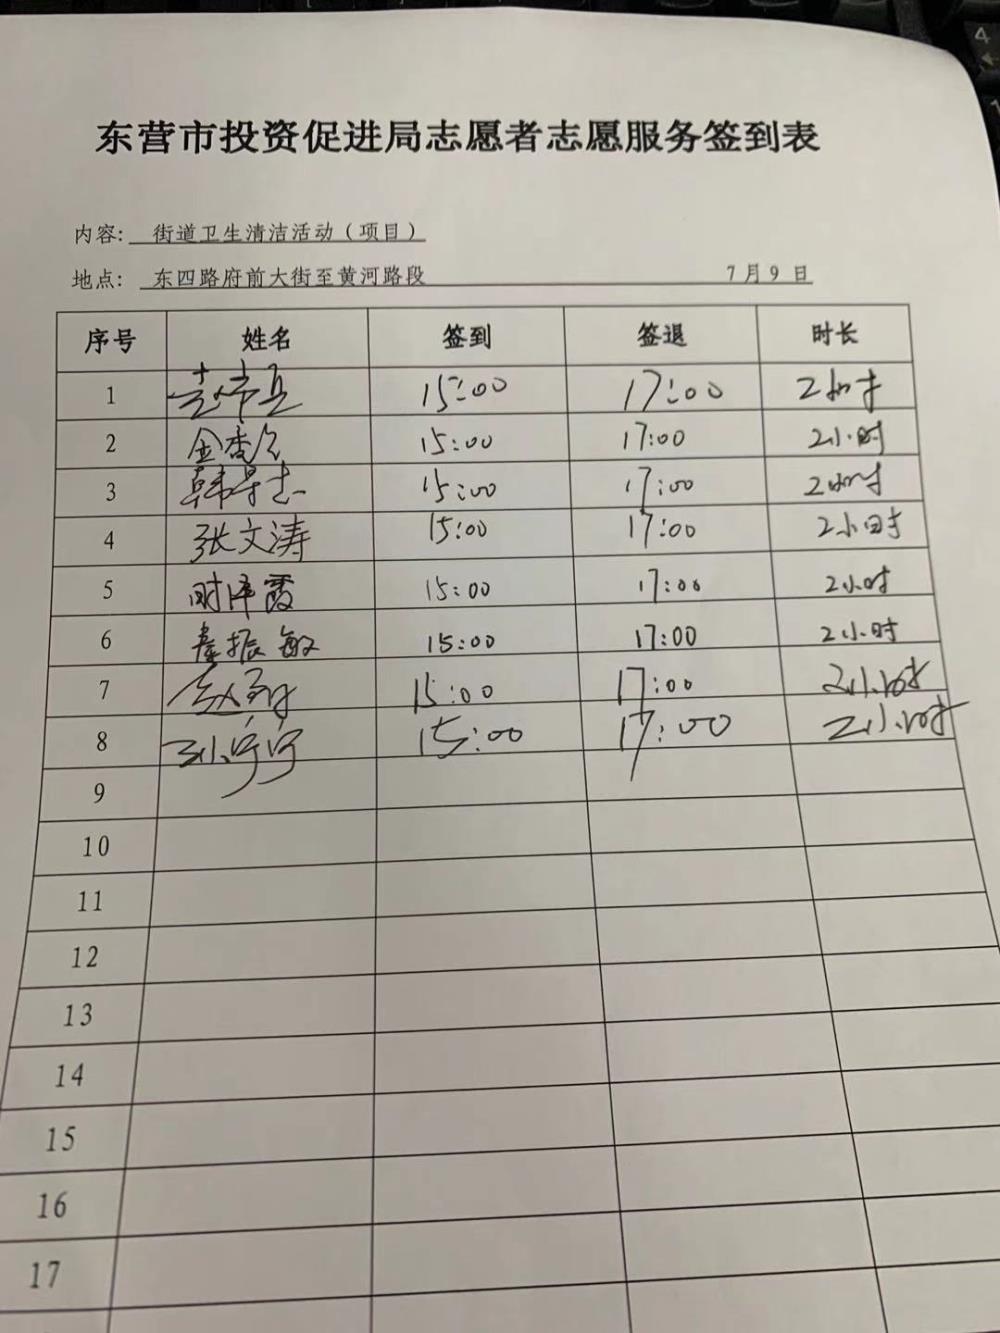 东营市投资促进局志愿者志愿服务签到表
内容: 街道卫生清洁活动（项目）
地点: 东四路府前大街至黄河路段 7月9日
序号 姓名 签到 签退 时长
1 15:00 17:00 2小时
2 15:00 17:00 2小时
3 15:00 17:00 2小时
4 张文涛 15:00 17:00 2小时
5 时泽霞 15:00 17:00 2小时
6 振敏 15:00 17:00 2小时
7 15:00 17:00 2小时
8 孙宁宁 15:00 17:00 2小时
9
10
11
12
13
14
15
16
17